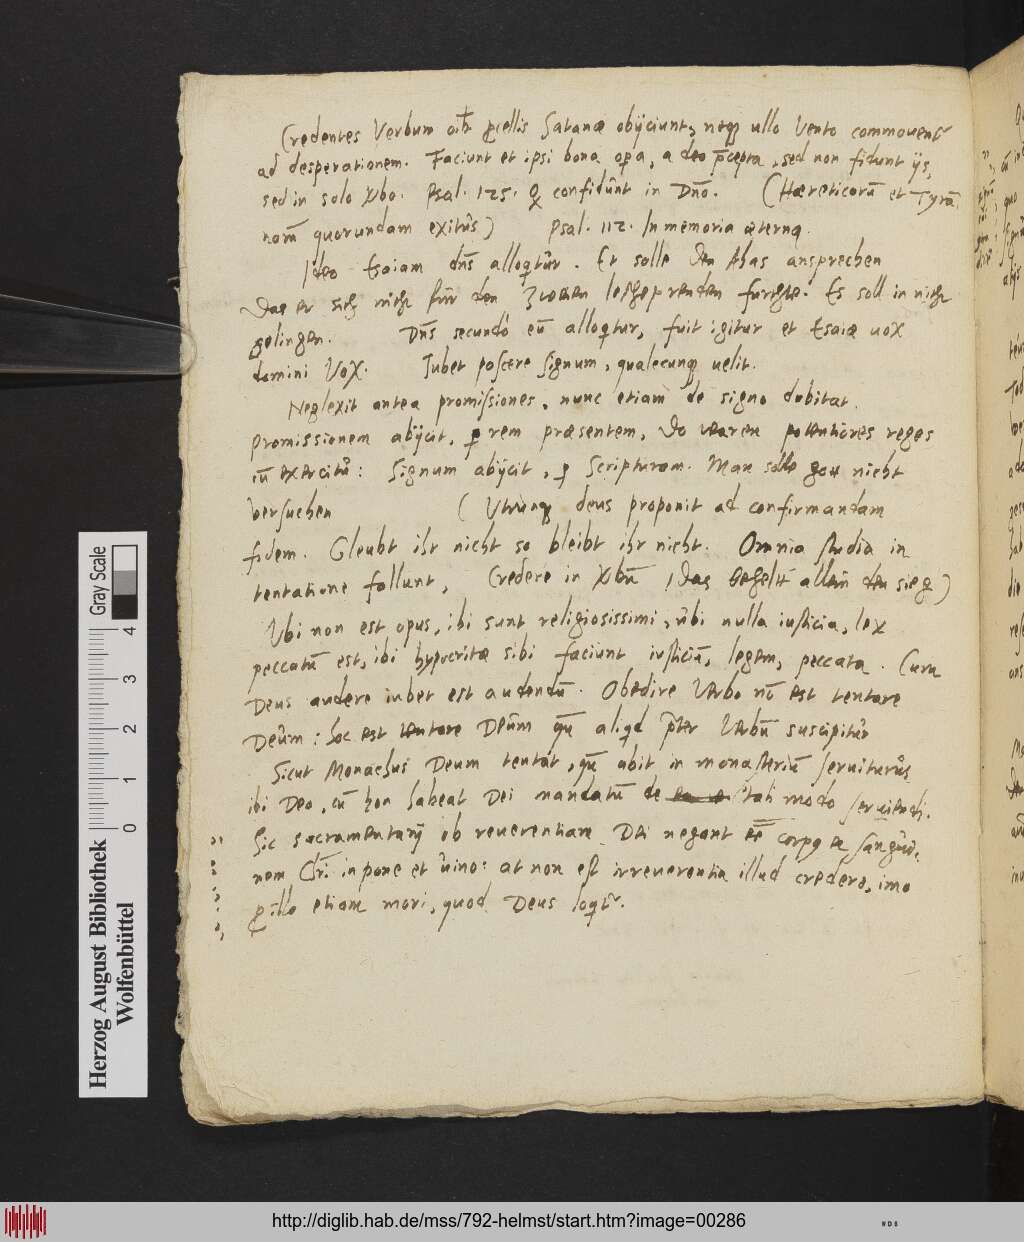 Credentes Verbum oîb procellis Satanæ obijciunt, neqꝫ ullo vento commouent~
ad desperationem. Faciunt et ipsi bona opa, a deo pcepta, sed non fidunt ijs,
sed in solo Xbo. Psal. 125. Q confidût in Dño. (Hæreticorū et Tyrā
norū quorundam exitûs) Psal. 112. In memoria æterna.
Ideo Esaiam dñs alloqitûr. Er solle den Ahas ansprechen
Das er sich nicht für den Zweien furchte. Es soll in nicht
gelingen. Dñs secundo eū alloqitur, fuit igitur et Esaiæ uox
domini Vox. Iubet poscere signum, qualecunqꝫ uelit.
Neglexit antea promissiones, nunc etiam de signo dubitat.
promissionem abijcit, ꝓ rem præsentem, Do waren potentiores reges
cū exercitû: Signum abijcit, ꝓ Scripturam. Man solle got nicht
versuchen (Utrunqꝫ deus proponit ad confirmandam
fidem. Gleubt ihr nicht so bleibt ihr nicht. Omnia studia in
tentatione fallunt, Credere in Xbū, das behelt allein den sieg)
Ubi non est opus, ibi sunt religiosissimi, ubi nulla iusticia, lex
peccatū est, ibi hypocritæ sibi faciunt iusticiā, legem, peccata. Cum
Deus audere iubet est audendū. Obedire Verbo nō est tentare
Deûm: hoc est tentare Deûm qn aliqd pter Verbū suscipitûr
Sicut Monachus Deum tentat, qn abit in monasteriū seruiturûs
ibi Deo, cū non habeat Dei mandatū de tali modo seruiendi.
Sic sacramentarij ob reuerentiam Dei negant eē corpꝯ et sangûi,
nem Chri in pane et ûino: at non est irreuerentia illud credere, imo
ꝓ illo etiam mori, quod Deus loqit~.
Herzog August Bibliothek
Wolfenbüttel
0 1 2 3 4
Gray Scale
http://diglib.hab.de/mss/792-helmst/start.htm?image=00286